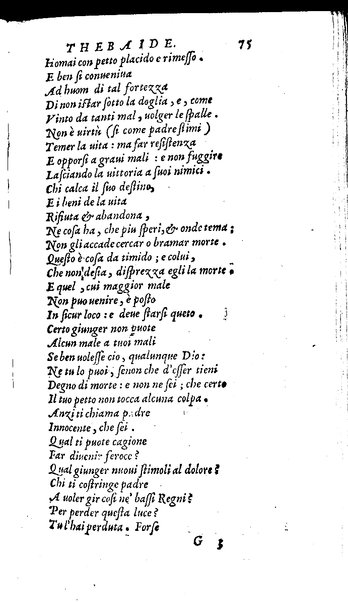 THEBAIDE. 75
Homai con petto placido e rimesso.
E ben si conueniua
Ad huom di tal fortezza
Di non istar sotto la doglia, e, come
Vinto da tanti mal, uolger le spalle.
Non è uirtù (si come padre stimi)
Temer la uita: ma far resistenza
E opporsi a graui mali: e non fuggire
Lasciando la uittoria a suoi nimici.
Chi calca il suo destino,
E i beni de la uita
Rifiuta & abandona,
Ne cosa ha, che piu speri, & onde tema;
Non gli accade cercar o bramar morte.
Questo è cosa da timido; e colui,
Che non desia, disprezza egli la morte.
E quel, cui maggior male
Non puo uenire, è posto
In sicur loco: e deue starsi queto.
Certo giunger non puote
Alcun male a tuoi mali
Se ben uolesse cio, qualunque Dio:
Ne tu lo puoi, senon che d'esser tieni
Degno di morte: e non ne sei; che certo
Il tuo petto non tocca alcuna colpa.
Anzi ti chiama padre
Innocente, che sei.
Qual ti puote cagione
Far diuenir feroce?
Qual giunger nuoui stimoli al dolore?
Chi ti costringe padre
A uoler gir cosi ne' bassi Regni?
Per perder questa luce?
Tu l'hai perduta. Forse
G 3